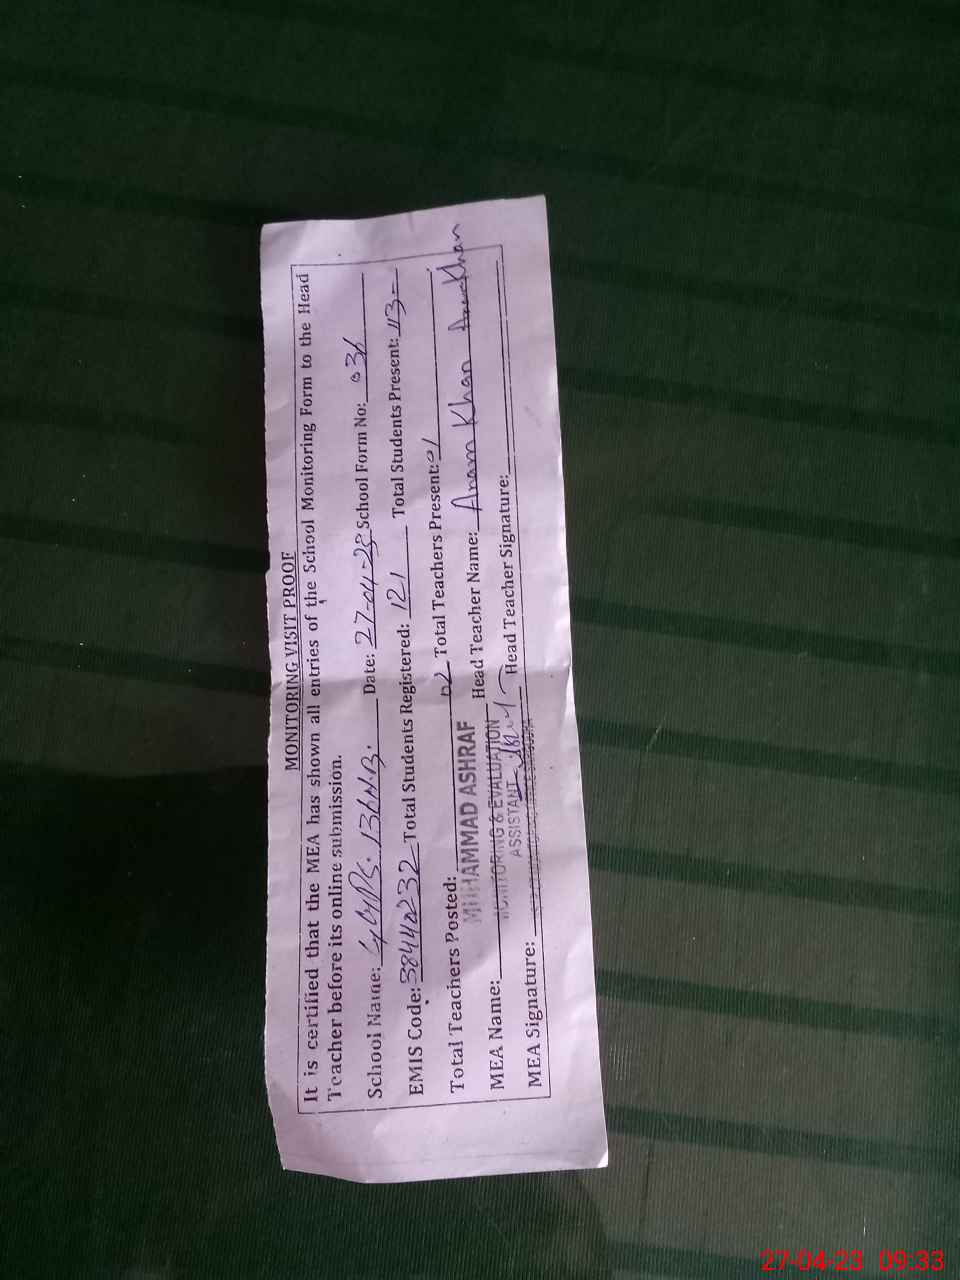 MONITORING VISIT PROOF
It is certified that the MEA has shown all entries of the School Monitoring Form to the Head
Teacher before its online submission.
School Name: GGPS. 136 N.B. Date: 27-04-23 School Form No: 036
EMIS Code: 38440232 Total Students Registered: 121 Total Students Present: 113
Total Teachers Posted: 02 Total Teachers Present: 01
MUHAMMAD ASHRAF
MEA Name: MONITORING & EVALUATION Head Teacher Name: Anam Khan Anam Khan
ASSISTANT
MEA Signature: Head Teacher Signature:
27-04-23 09:33